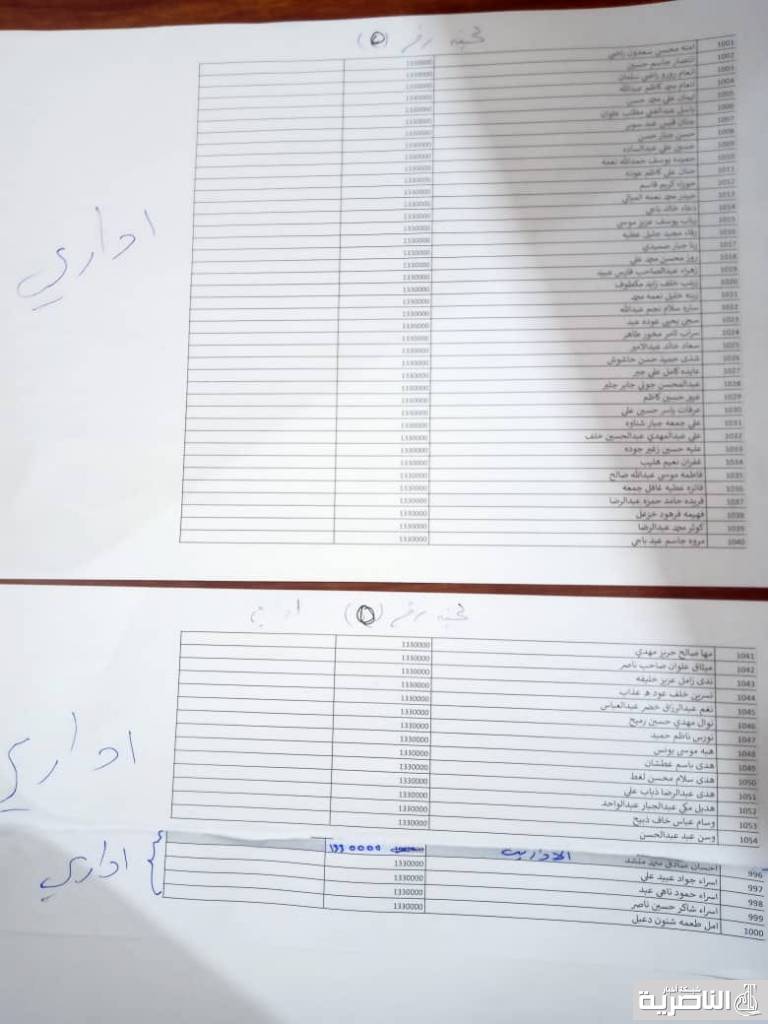 لجنة رقم (٥)
1001 امنه محسن سعدون راضي 1330000
1002 انتصار جاسم حسين 1330000
1003 انعام زورو راضي سلمان 1330000
1004 انعام محمد كاظم عبدالله 1330000
1005 ايمان علي محمد حسن 1330000
1006 باسل عبدالغني مطلب علوان 1330000
1007 1330000
1008 حسن جبار حسن 1330000
1009 حسين علي عبدالساده 1330000
1010 حميده يوسف حمدالله نعمه 1330000
1011 حنان علي كاظم عوده 1330000
1012 حوراء كريم قاسم 1330000
1013 حيدر محمد نعمه 1330000
1014 دعاء خالد ناجي 1330000
1015 رباب يوسف عزيز موسى 1330000
1016 رفاه مجيد جليل عطيه 1330000
1017 رنا جبار حميدي 1330000
1018 روز محسن محمد علي 1330000
1019 زهراء عبدالصاحب فارس عبيد 1330000
1020 زينب خلف زايد مكطوف 1330000
1021 زينه خليل نعمه محمد 1330000
1022 ساره سلام نجم عبدالله 1330000
1023 سجى يحيى عوده عبد 1330000
1024 سراب ثامر طاهر 1330000
1025 سعاد خالد عبدالامير 1330000
1026 شذى حميد حسن حاشوش 1330000
1027 عايده كامل علي جبر 1330000
1028 عبدالمحسن جوني جابر جلبر 1330000
1029 عبير حسين كاظم 1330000
1030 عرفات ياسر حسين علي 1330000
1031 علي جمعه جبار شناوه 1330000
1032 علي عبدالمهدي عبدالحسين خلف 1330000
1033 عليه حسين زغير جوده 1330000
1034 غفران نعيم هليب 1330000
1035 فاطمه موسى عبدالله صالح 1330000
1036 فائزه عطيه غافل جمعه 1330000
1037 فريده حامد حمزه عبدالرضا 1330000
1038 فهيمه فرهود خزعل 1330000
1039 كوثر محمد عبدالرضا 1330000
1040 مروه جاسم عيد باجي 1330000
اداري
لجنة رقم (٥)
1041 مها صالح حريز مهدي 1330000
1042 ميثاق علوان صاحب ناصر 1330000
1043 ندى زامل عزيز خليفه 1330000
1044 نسرين خلف عود ه عذاب 1330000
1045 نغم عبدالرزاق خضر عبدالعباس 1330000
1046 نوال مهدي حسين رميح 1330000
1047 نورس ناظم حميد 1330000
1048 هبه موسى يونس 1330000
1049 هدى باسم عطشان 1330000
1050 هدى سلام محسن لفط 1330000
1051 هدى عبدالرضا ذياب علي 1330000
1052 هديل مكي عبدالجبار عبدالواحد 1330000
1053 وسام عباس خاف ذبيح 1330000
1054 وسن عبد عبدالحسن 1330000
اداري
996 احسان صادق محمد ملشد
997 اسراء جواد عبيد علي 1330000
998 اسراء حمود ناهي عبد 1330000
999 اسراء شاكر حسين ناصر 1330000
1000 امل طعمه شنون دعبل 1330000
اداري
شبكة أخبار
الناصرية